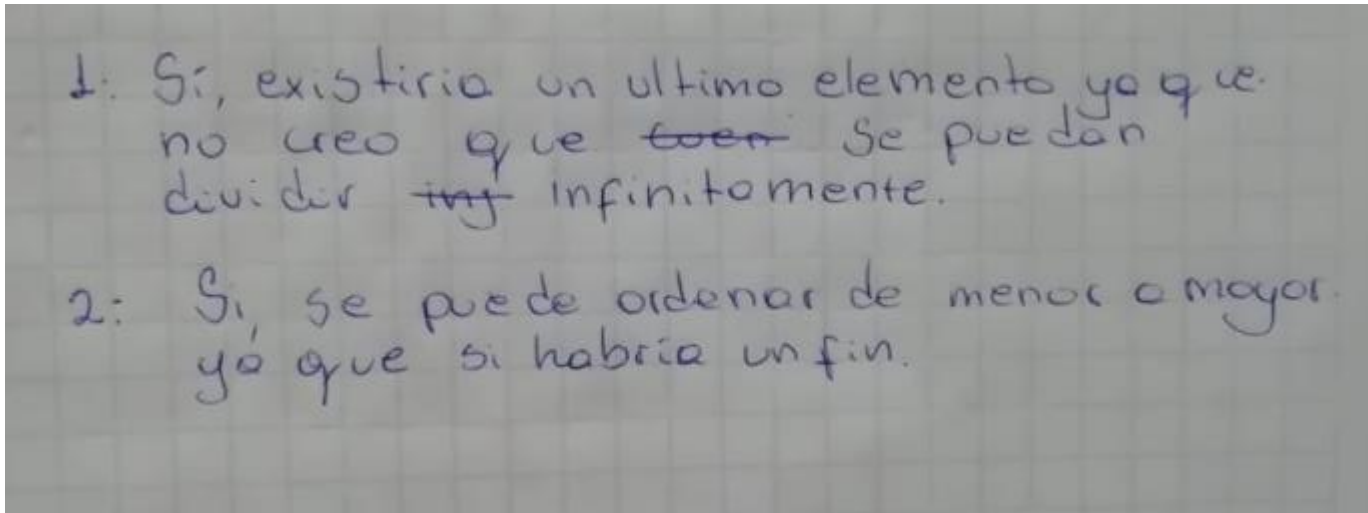 1: Si, existiria un ultimo elemento, ya que.
no creo que se puedan
dividir infinitamente.
2: Si, se puede ordenar de menor a mayor.
ya que si habria un fin.